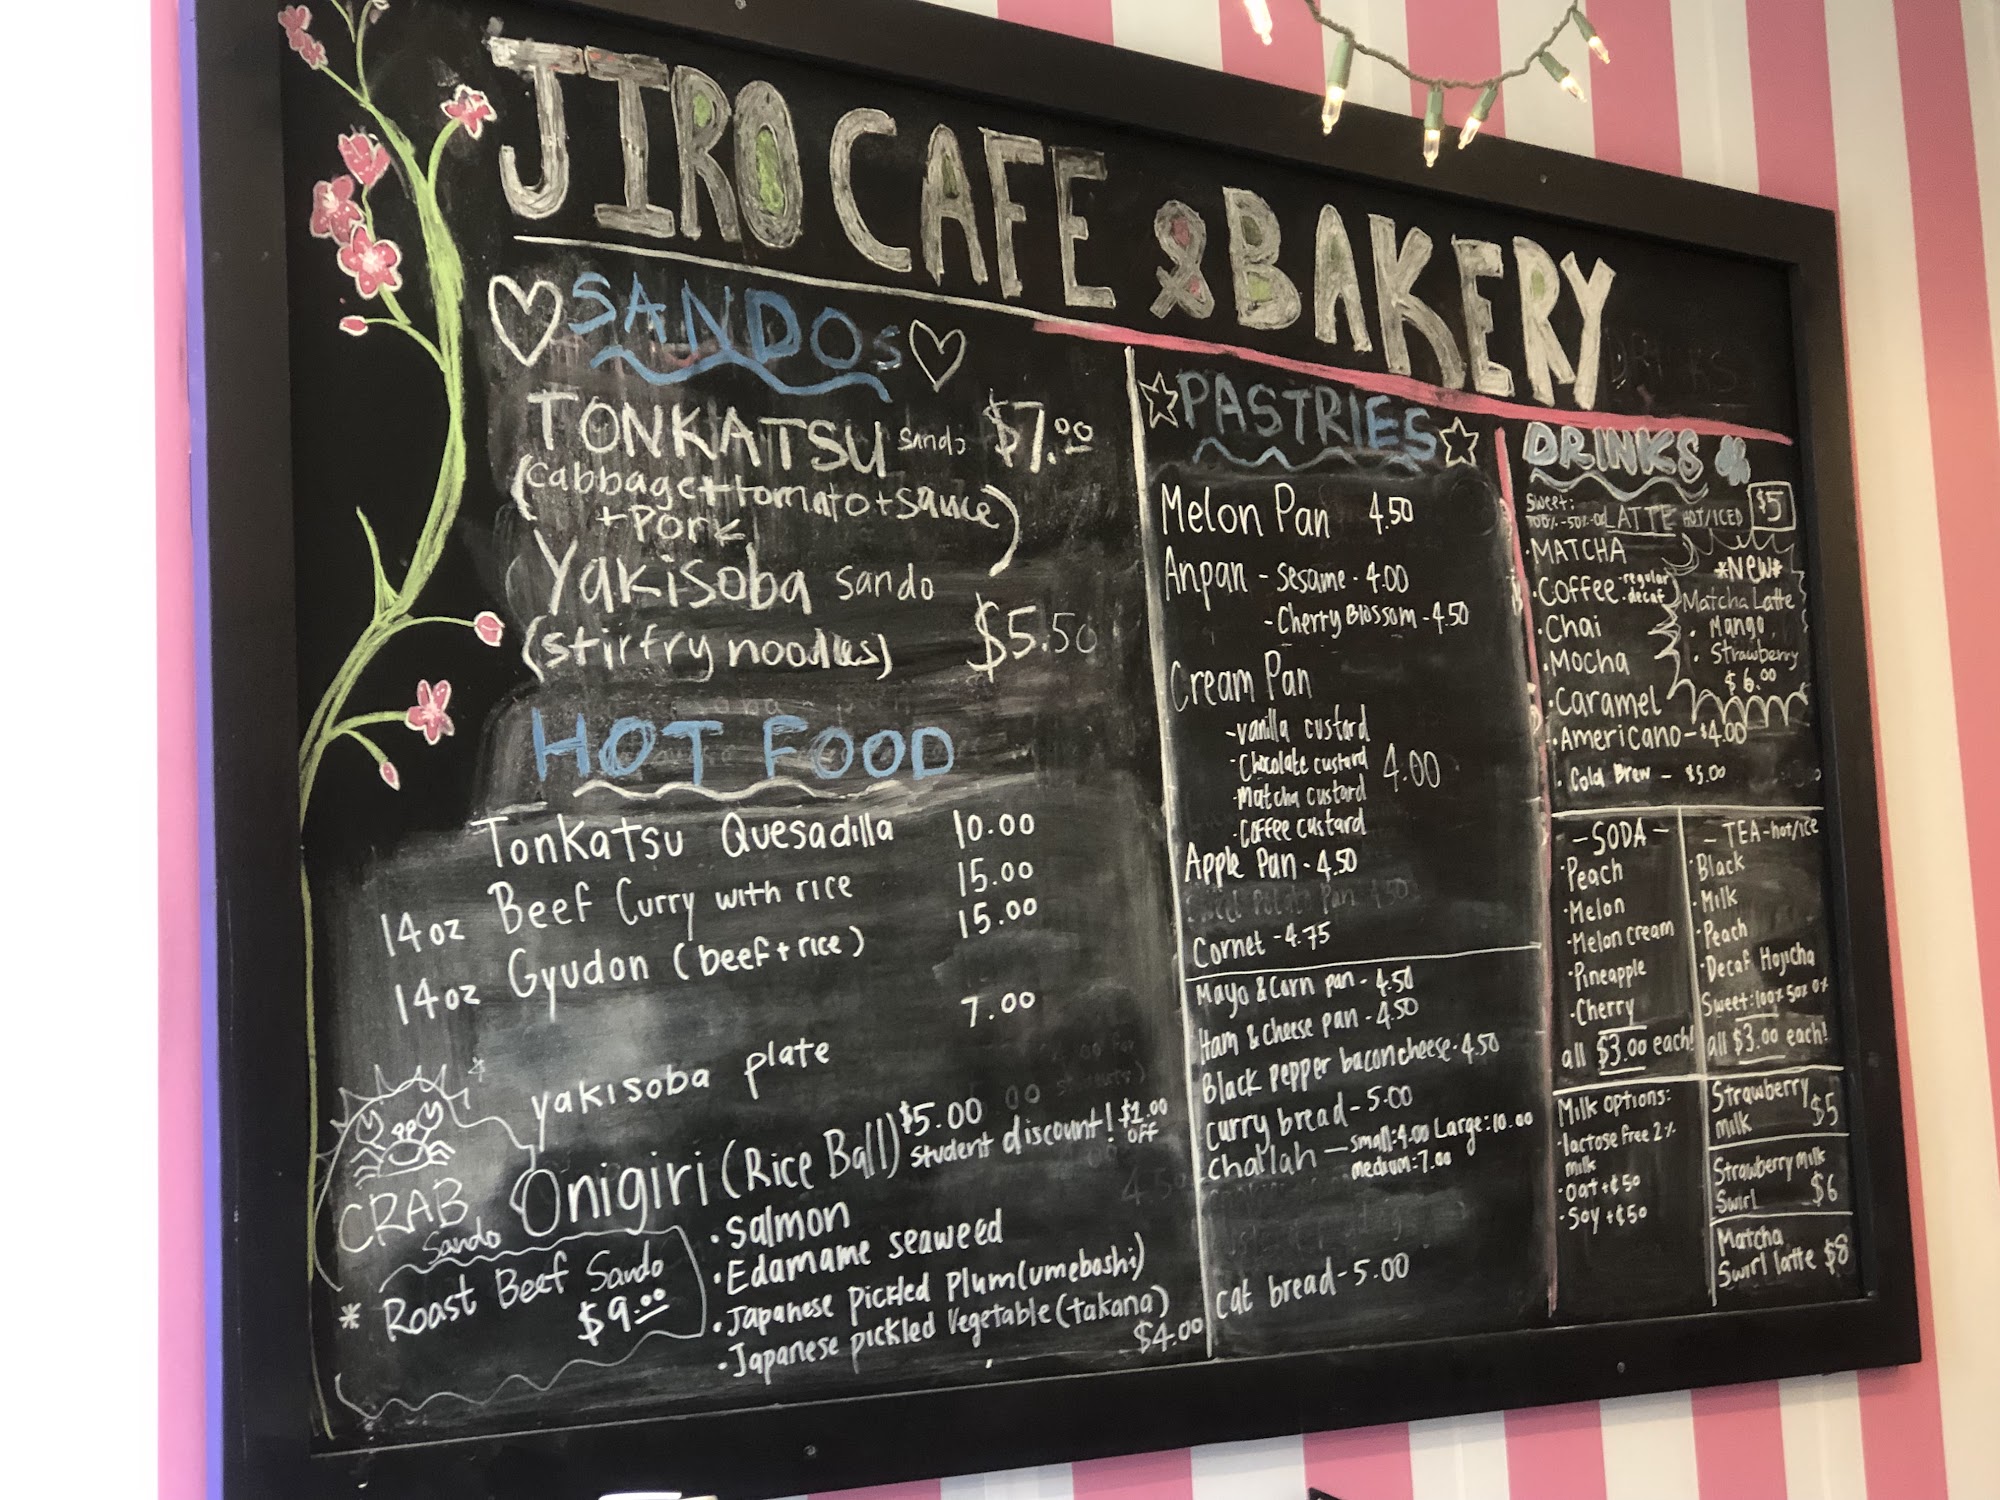 JIRO CAFE & BAKERY
SANDOS
TONKATSU sando $7.00
(cabbage+tomato+sauce
+pork)
Yakisoba sando
(stirfry noodles) $5.50
HOT FOOD
Tonkatsu Quesadilla 10.00
14oz Beef Curry with rice 15.00
14oz Gyudon (beef+rice) 15.00
yakisoba plate 7.00
Onigiri (Rice Ball) $5.00
student discount! $1.00
OFF
• salmon
• Edamame seaweed
• Japanese Pickled Plum (umeboshi)
• Japanese pickled vegetable (takana)
$4.00
CRAB
Sando
* Roast Beef Sando
$9.00
PASTRIES
Melon Pan 4.50
Anpan - sesame - 4.00
- Cherry Blossom - 4.50
Cream Pan
- vanilla custard
- Chocolate custard 4.00
- Matcha custard
- Coffee custard
Apple Pan - 4.50
Sweet Potato Pan 4.50
Cornet - 4.75
Mayo & Corn pan - 4.50
Ham & cheese pan - 4.50
Black pepper bacon cheese - 4.50
curry bread - 5.00
challah — small: 4.00 Large: 10.00
medium: 7.00
cat bread - 5.00
DRINKS
DRINKS
Sweet:
100%-50%-0% LATTE HOT/ICED $5
• MATCHA
• Coffee • regular
• decaf
• Chai
• Mocha
• Caramel
• Americano - $4.00
• Cold Brew - $5.00
*New*
Matcha Latte
• Mango
• Strawberry
$6.00
- SODA -
• Peach
• Melon
• Melon cream
• Pineapple
• Cherry
all $3.00 each!
- TEA - hot/ice
• Black
• Milk
• Peach
• Decaf Hojicha
Sweet: 100% 50% 0%
all $3.00 each!
Milk options:
• lactose free 2%
milk
• Oat +¢50
• Soy +¢50
Strawberry
milk $5
Strawberry milk
Swirl $6
Matcha
Swirl latte $8